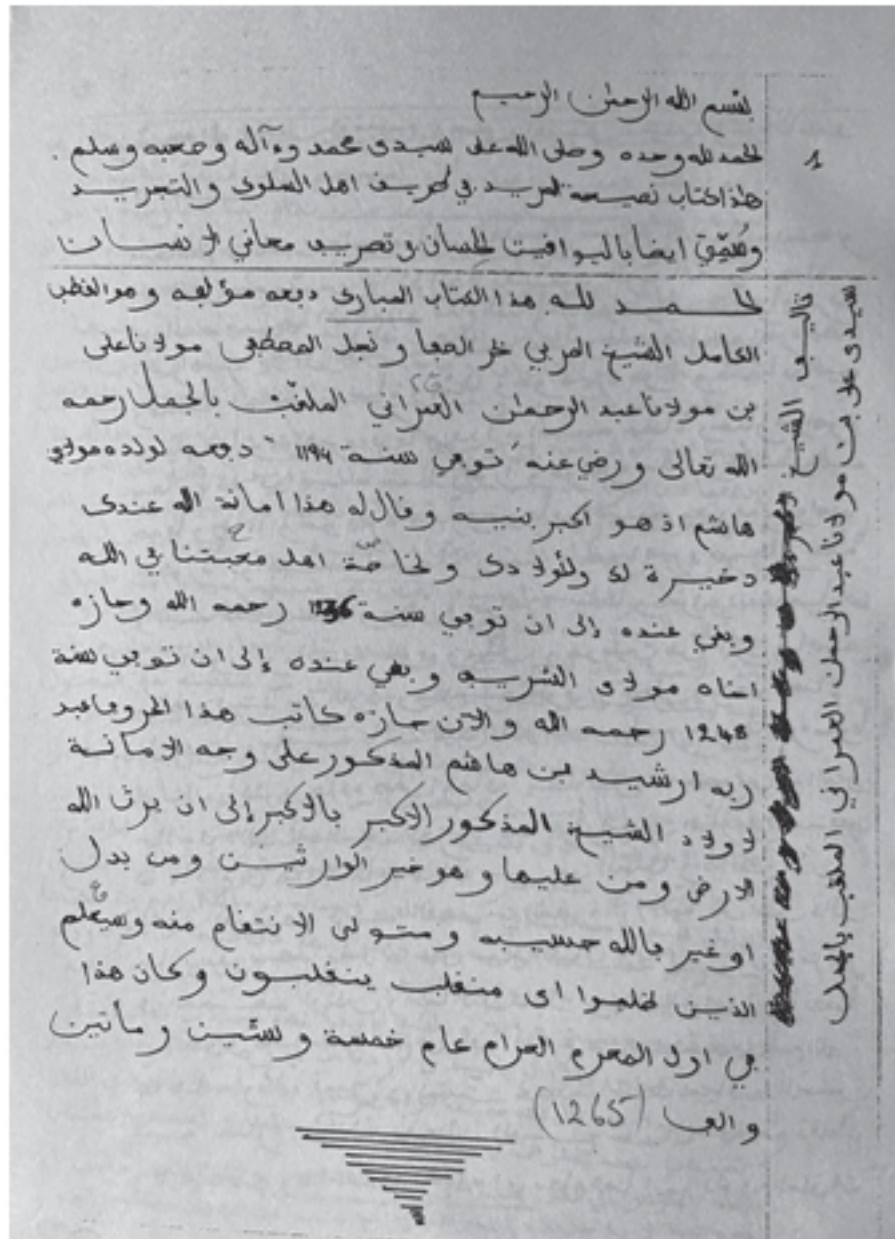 بسم الله الرحمن الرحيم
1
الحمد لله وحده وصلى الله على سيدى محمد وءآله وصحبه وسلم .
هذا كتاب نصيحة المريد في طريق اهل السلوك والتجريد
وسُمِّيَ ايضا باليواقيت الحسان وتصريف معاني الانسان
الحمد لله هذا الكتاب المبارك دفعه مؤلفه وهو القطب
الكامل الشيخ المربي نجل المصطفى مولانا على
بن مولانا عبد الرحمن العمراني الملقّب بالجمل رحمه
الله تعالى ورضي عنه توفي سنة 1194 دفعه لولده مولاي
هاشم اذ هو اكبر بنيه وقال له هذا امانة الله عندى
دخيرة لك ولأولادى ولخاصّة اهل محبتنا في الله
وبقي عنده إلى ان توفي سنة رحمه الله وحازه
اخاه مولاى الشريف وبقي عنده إلى ان توفي سنة
1248 رحمه الله والان حازه كاتب هذا الحروف عبد
ربه ارشيد بن هاشم المذكور على وجه الامانة
لاولاد الشيخ المذكور الاكبر بالاكبر إلى ان يرث الله
الارض ومن عليها وهو خير الوارثين ومن بدل
او غير فالله حسيبه ومتولى الانتقام منه وسيعلم
الذين ظلموا اى منقلب ينقلبون وكان هذا
في اول المحرم الحرام عام خمسة وستين ومأتين
والف (1265)
تأليف الشيخ
سيدى على بن مولانا عبد الرحمن العمراني الملقب بالجمل